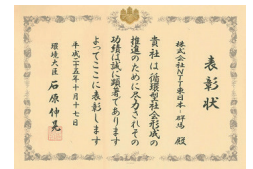 表彰状
株式会社NTT東日本－群馬 殿
貴社は循環型社会形成の
推進のために尽力されその
功績は誠に顕著であります
よってここに表彰します
平成二十五年十月十七日
環境大臣 石原伸晃